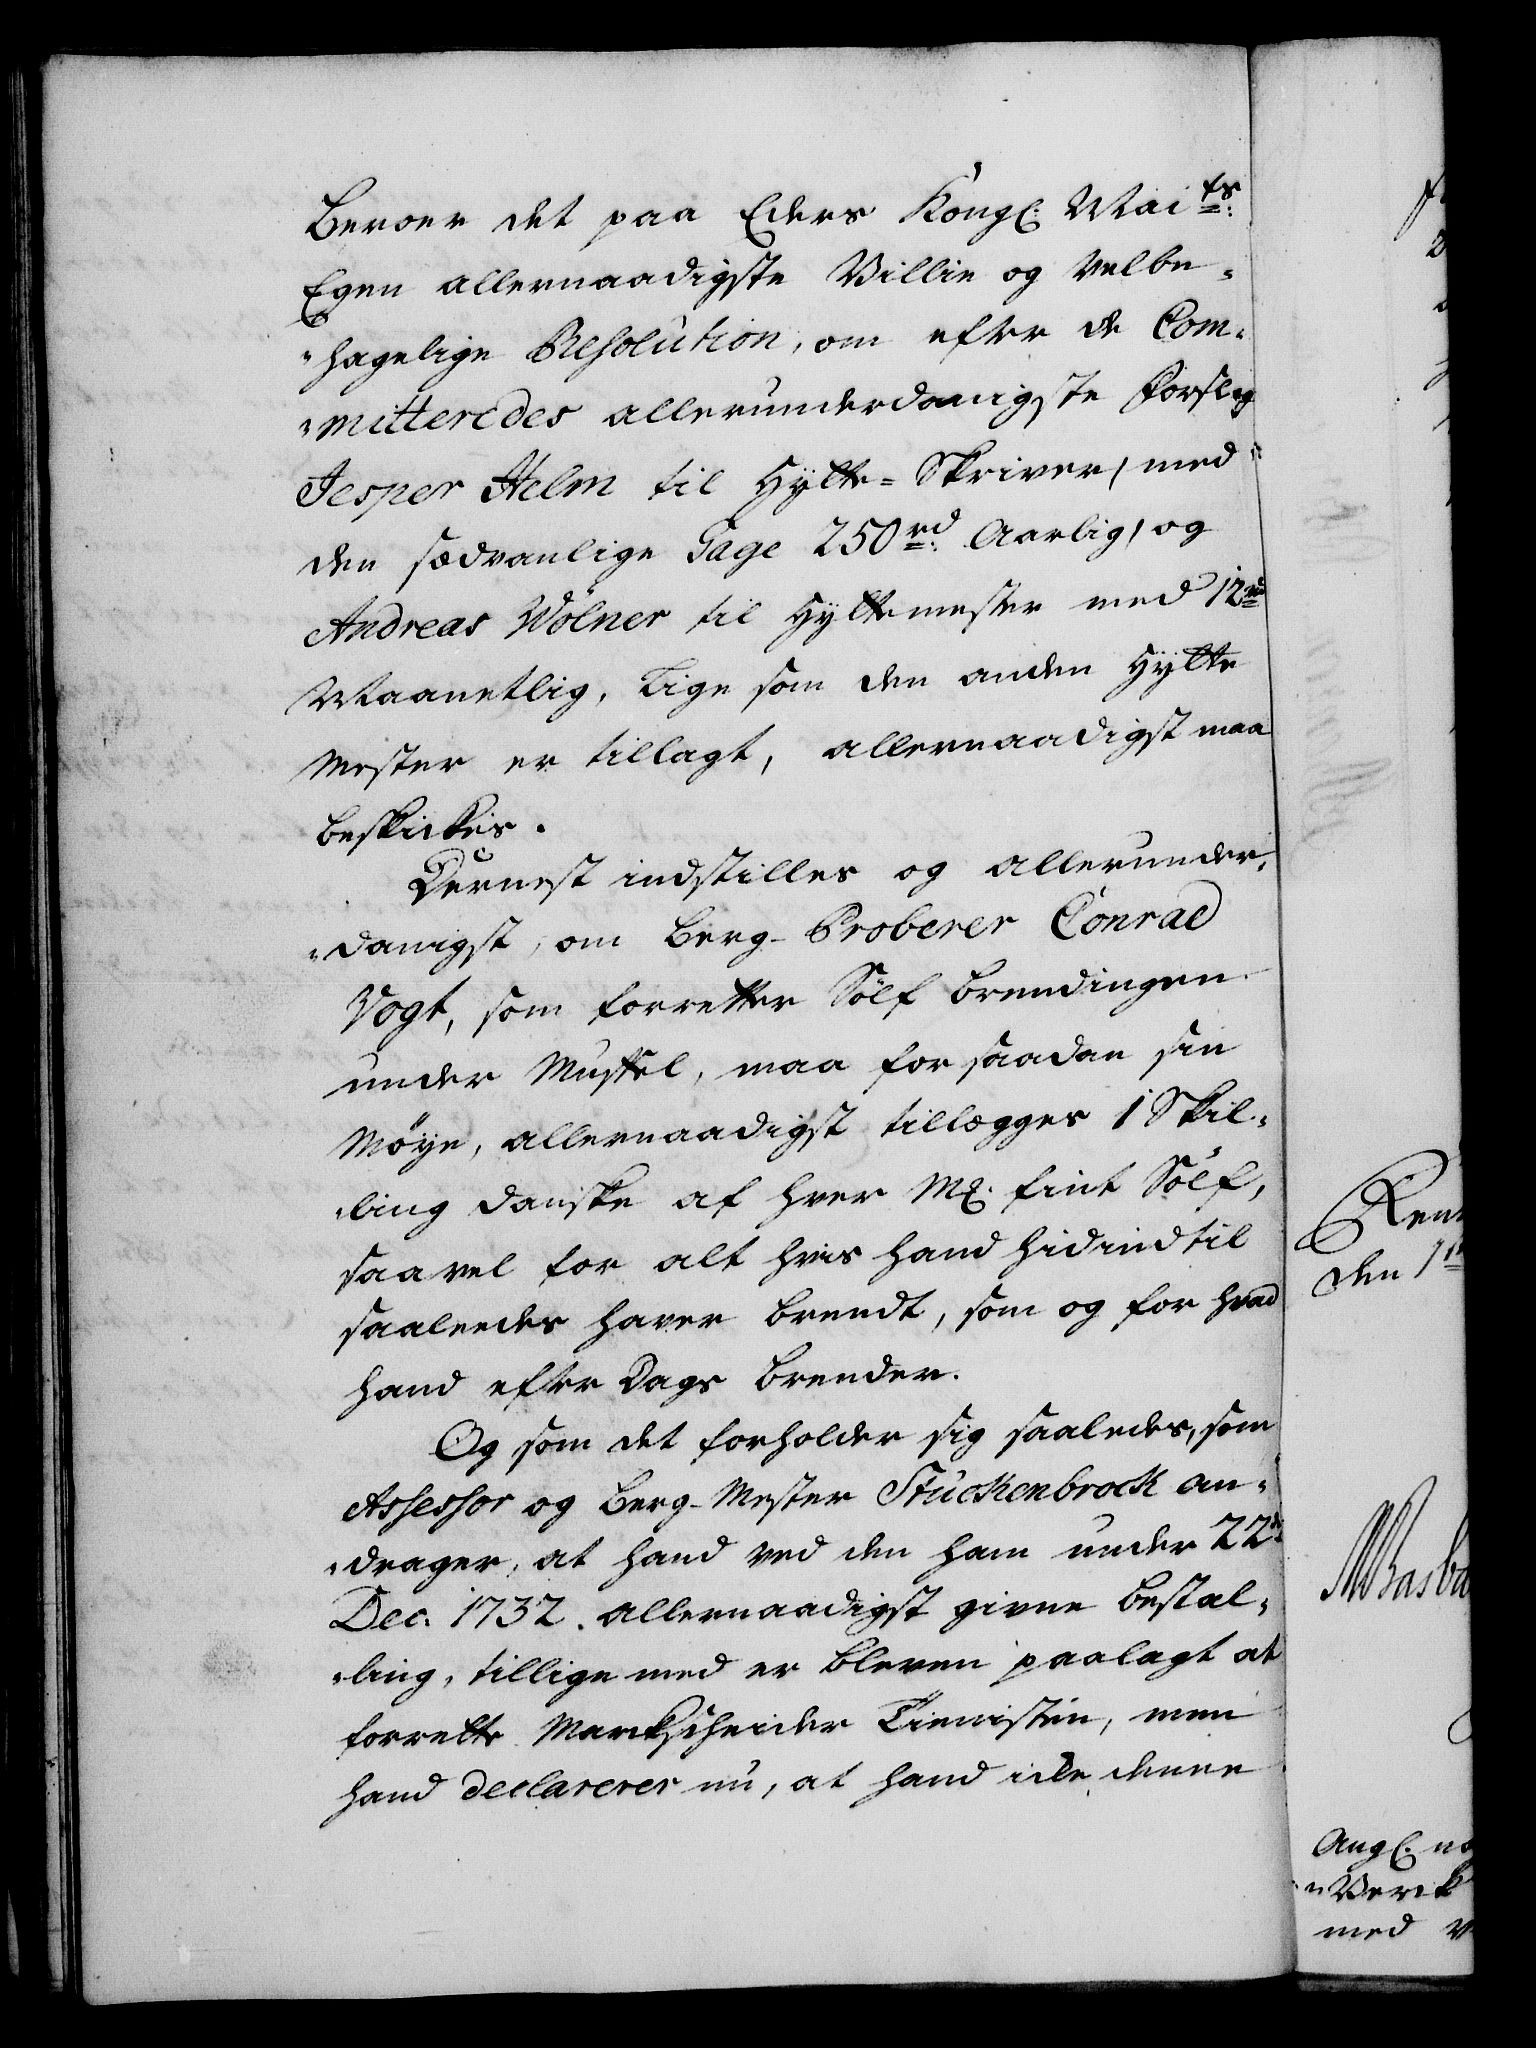 Beroer det paa Eders Kongl: Mai:ts
Egen allernaadigste Villie og Velbe-
-hagelige Resolution, om efter de Com-
-mitteredes allerunderdanigste Forslag
Jesper Helm til Hytte-Skriver, med
den sædvanlige Gage 250 rd: Aarlig, og
Andreas Wölner til Hyttemester med 12 rd
Maanetlig, Lige som den anden Hytte
Mester er tillagt, allernaadigst maa
beskickes.
Dernest indstilles og allerunder-
-danigst, om Berg-Proberer Conrad
Vogt, som forretter Sölf brendingen
under Muffel, maa for saadan sin
Möye, allernaadigst tillegges 1 Skil-
-ling danske af hver Mk: fint Sölf,
saavel for alt hvis hand hidindtil
saaleedes haver brendt, som og for hvad
hand efter Dags brender.
Og som det forholder sig saaledes, som
Assessor og Berg-Mester Stuckenbrock an-
-drager, at hand ved den ham under 22de
Dec: 1732. allernaadigst givne Bestal-
-ling, tillige med er bleven paalagt at
forrette Markscheider Tienisten, men
hand declarerer nu, at hand icke denne
den
Angl: no
-Verck
med